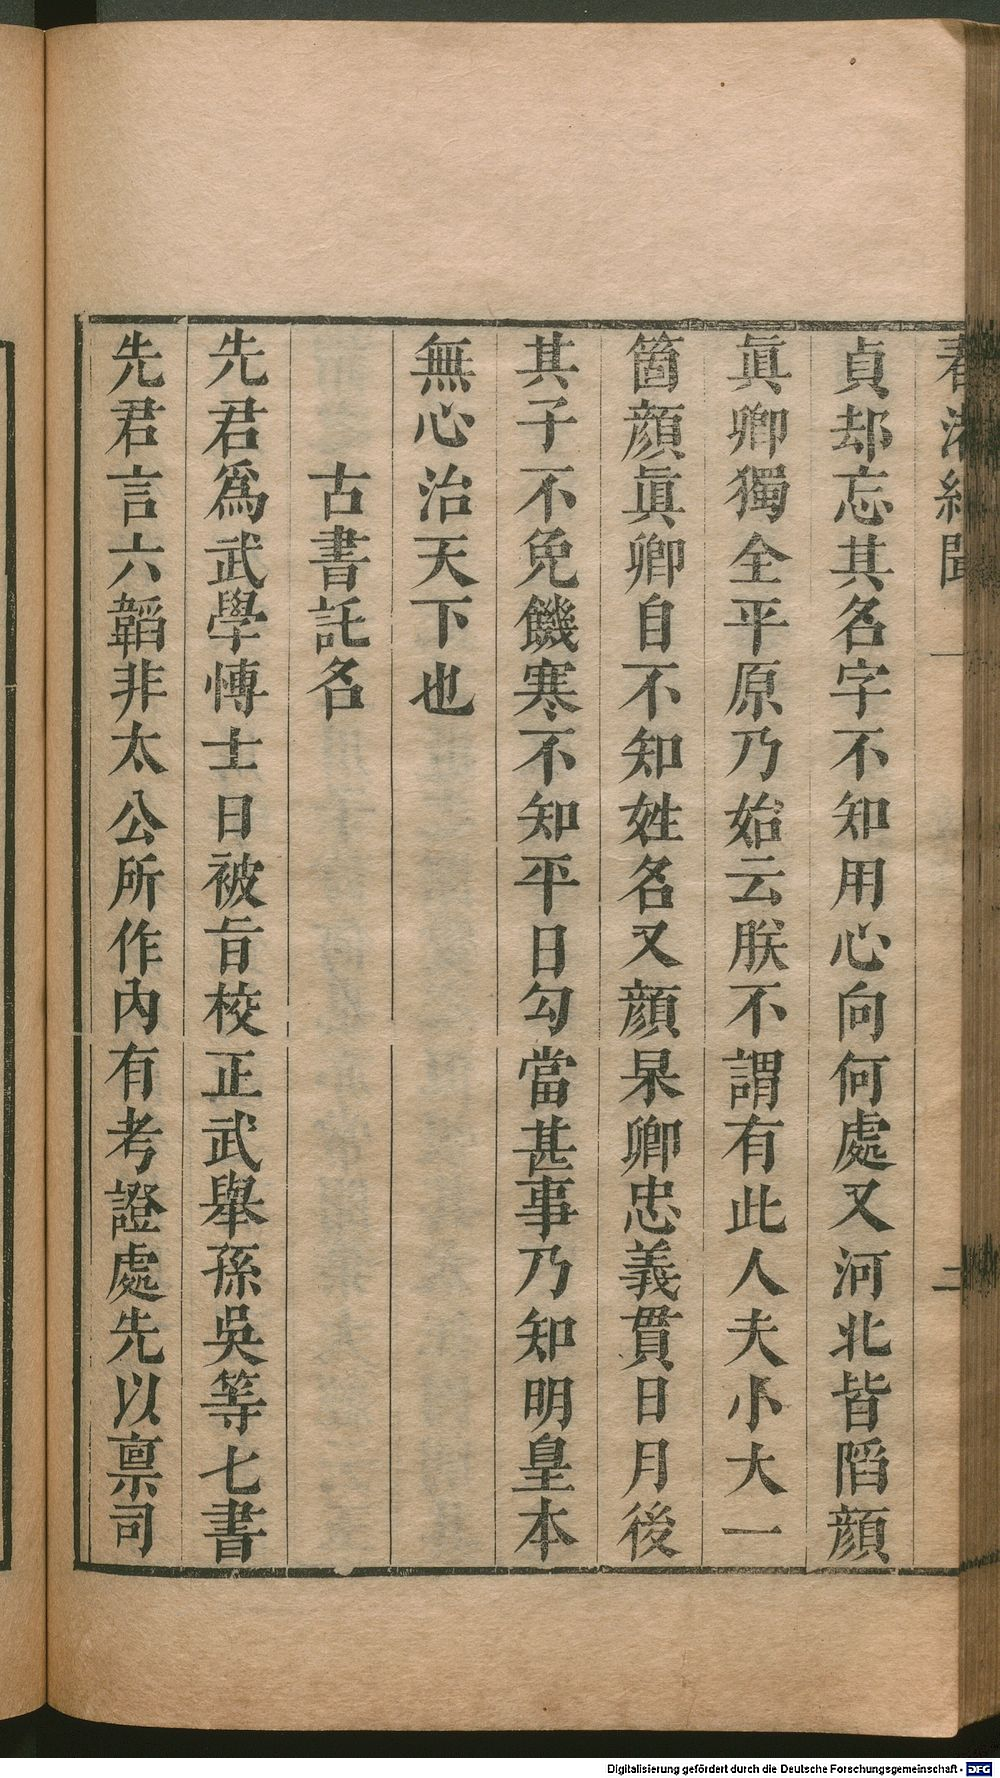 春渚紀聞 一 二
貞却忘其名字不知用心向何處又河北皆䧟顔
眞卿獨全平原乃始云朕不謂有此人夫小大一
箇顔眞卿自不知姓名又顔杲卿忠義貫日月後
其子不免饑寒不知平日勾當甚事乃知明皇本
無心治天下也
古書託名
先君爲武學博士日被旨校正武舉孫吳等七書
先君言六韜非太公所作內有考證處先以禀司
Digitalisierung gefördert durch die Deutsche Forschungsgemeinschaft - DFG